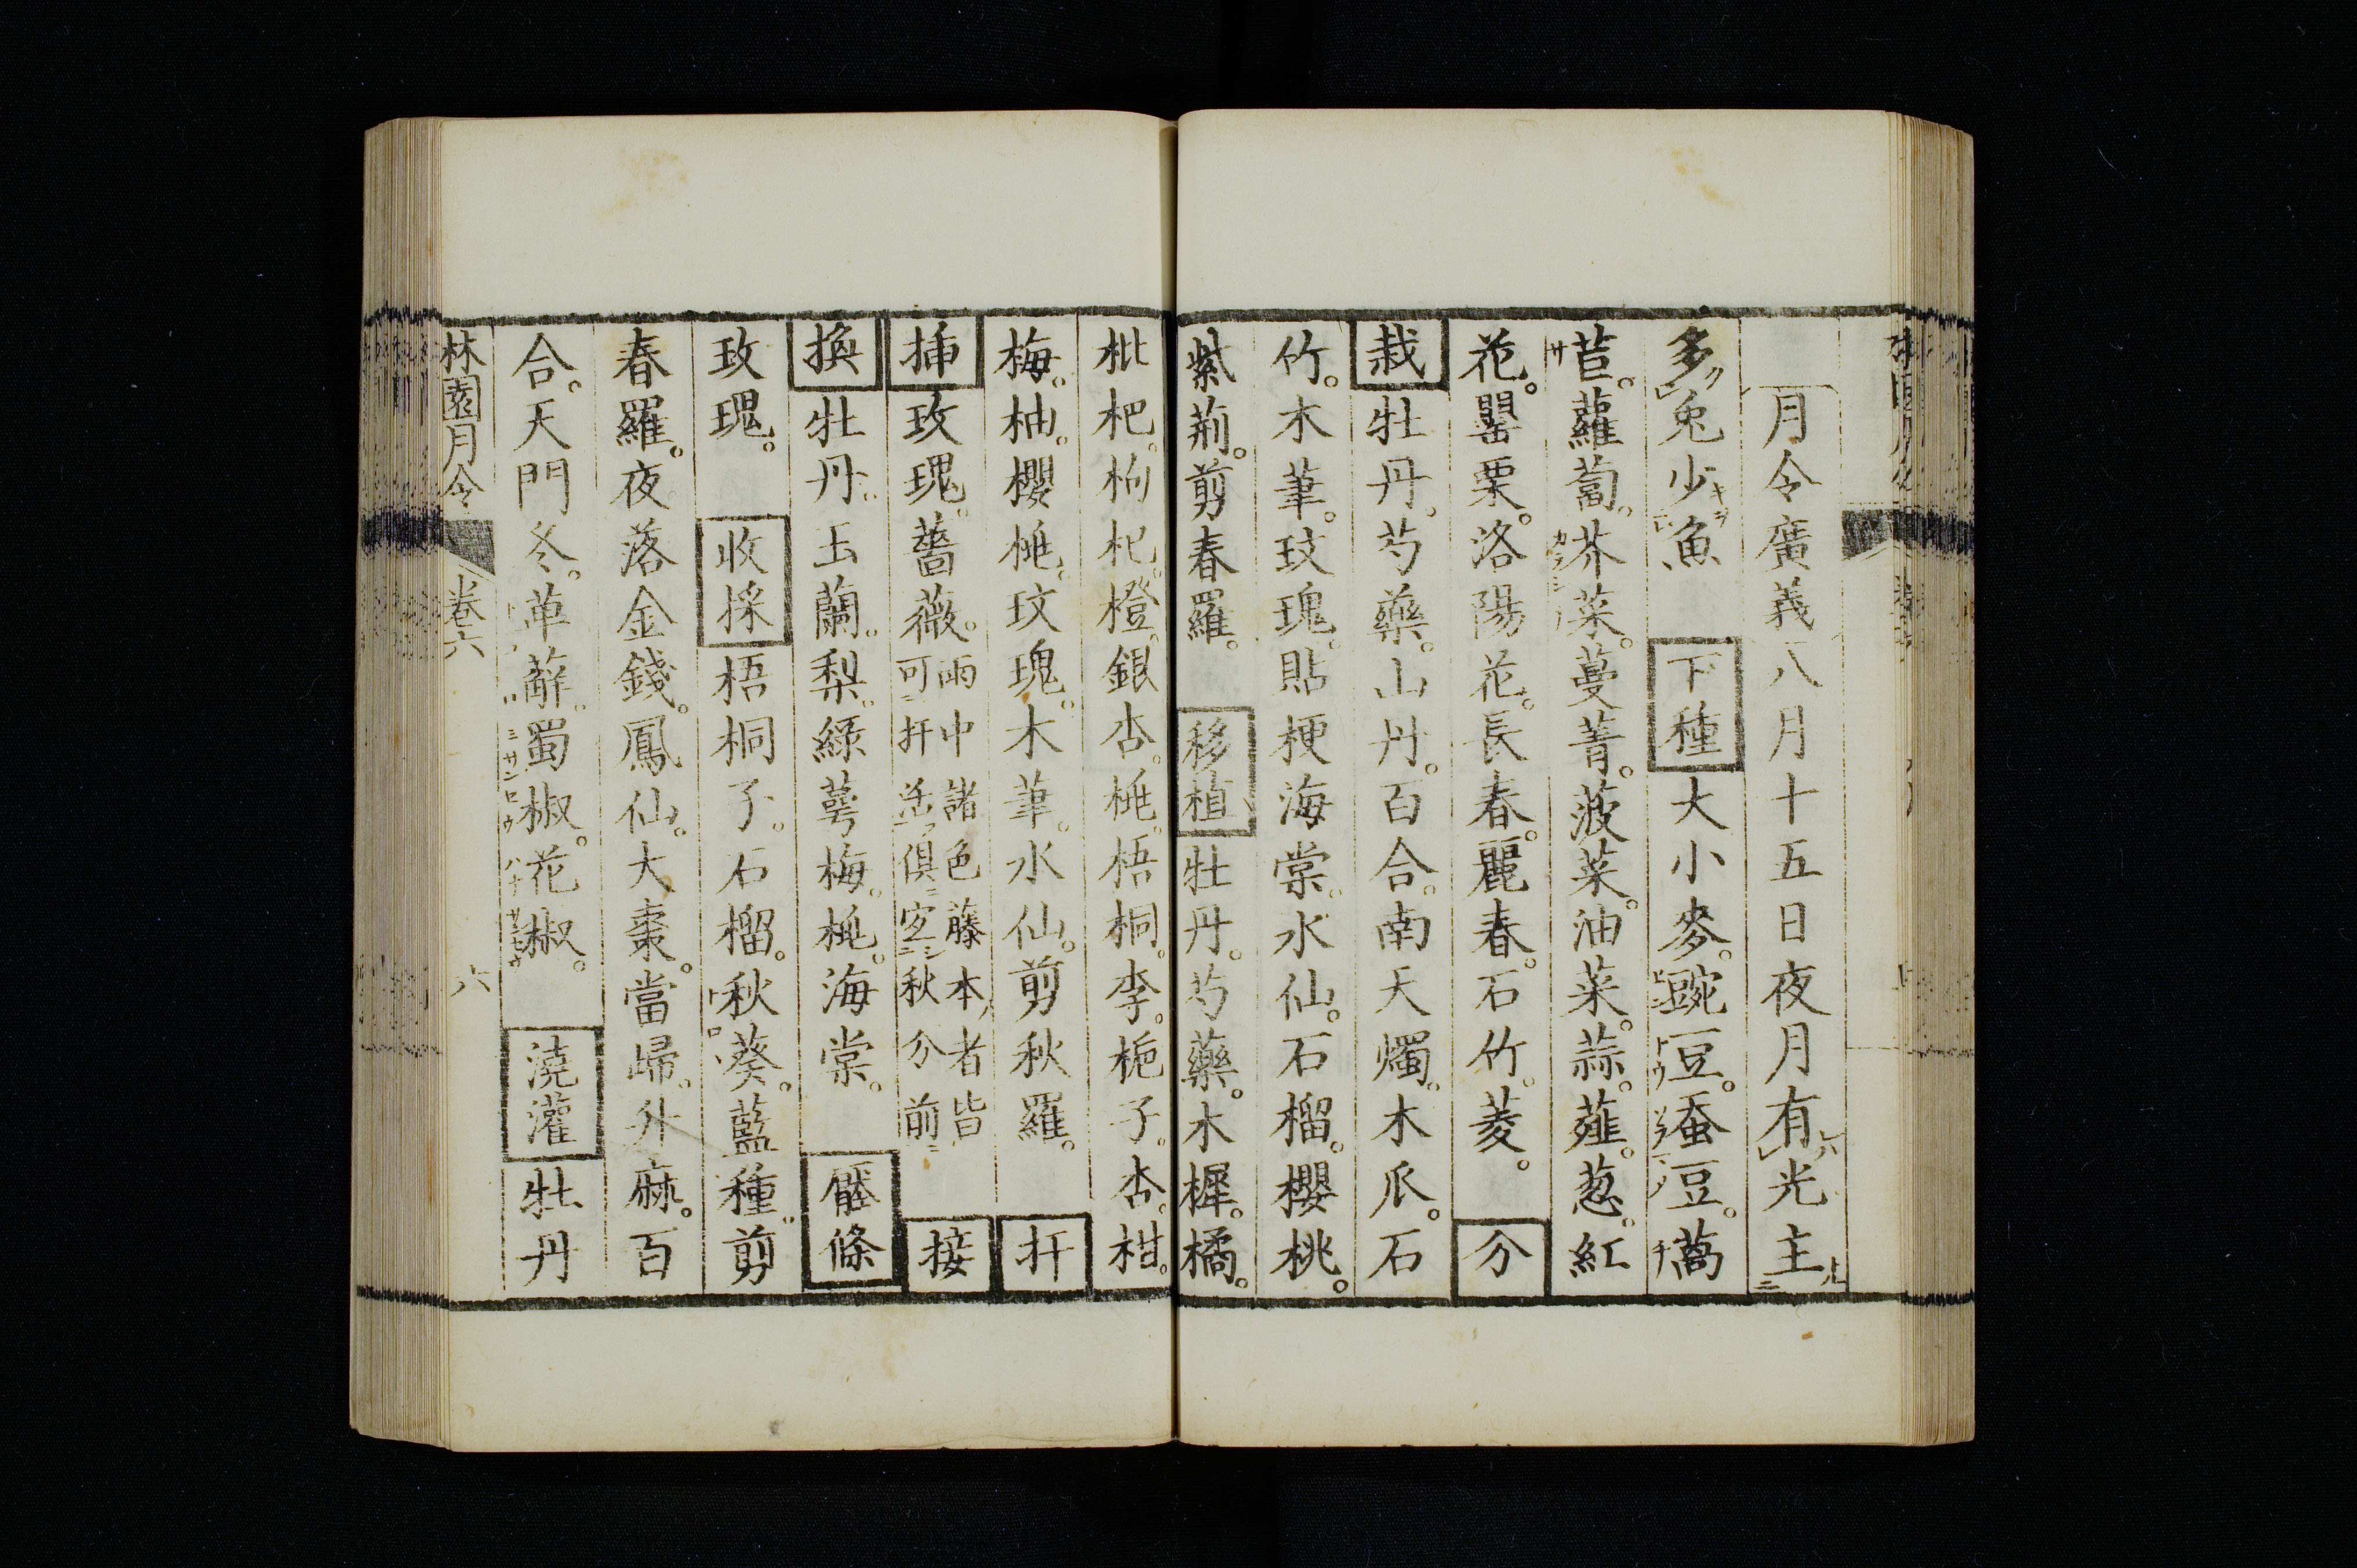 月令廣義八月十五日夜月有光主
多兎少魚 下種 大小麥。豌豆。蚕豆。萵
苣。蘿蔔。芥菜。蔓菁。菠菜。油菜。蒜。薤。葱。紅
花。罌粟。洛陽花。長春。麗春。石竹。菱。 分
栽 牡丹。芍藥。山丹。百合。南天燭。木瓜。石
竹。木筆。玫瑰。貼梗海棠。水仙。石榴。櫻桃。
紫荊。剪春羅。 移植 牡丹。芍藥。木樨。橘。
枇杷。枸杞。橙。銀杏。桃。梧桐。李。梔子。杏。柑。
梅。柚。櫻桃。玫瑰。木筆。水仙。剪秋羅。 扦
插 玫瑰。薔薇。雨中諸色藤本者皆
可扦活俱宜秋分前 接
換 牡丹。玉蘭。梨。綠萼梅。桃。海棠。 壓條
玫瑰。 收採 梧桐子。石榴。秋葵。藍種。剪
春羅。夜落金錢。鳳仙。大棗。當歸。升麻。百
合。天門冬。萆薢。蜀椒。花椒。 澆灌 牡丹
林園月令 卷六 六